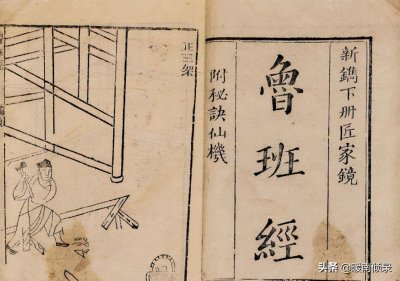 新鐫下册匠家鏡
魯班經
附秘訣仙機
正三架
头条